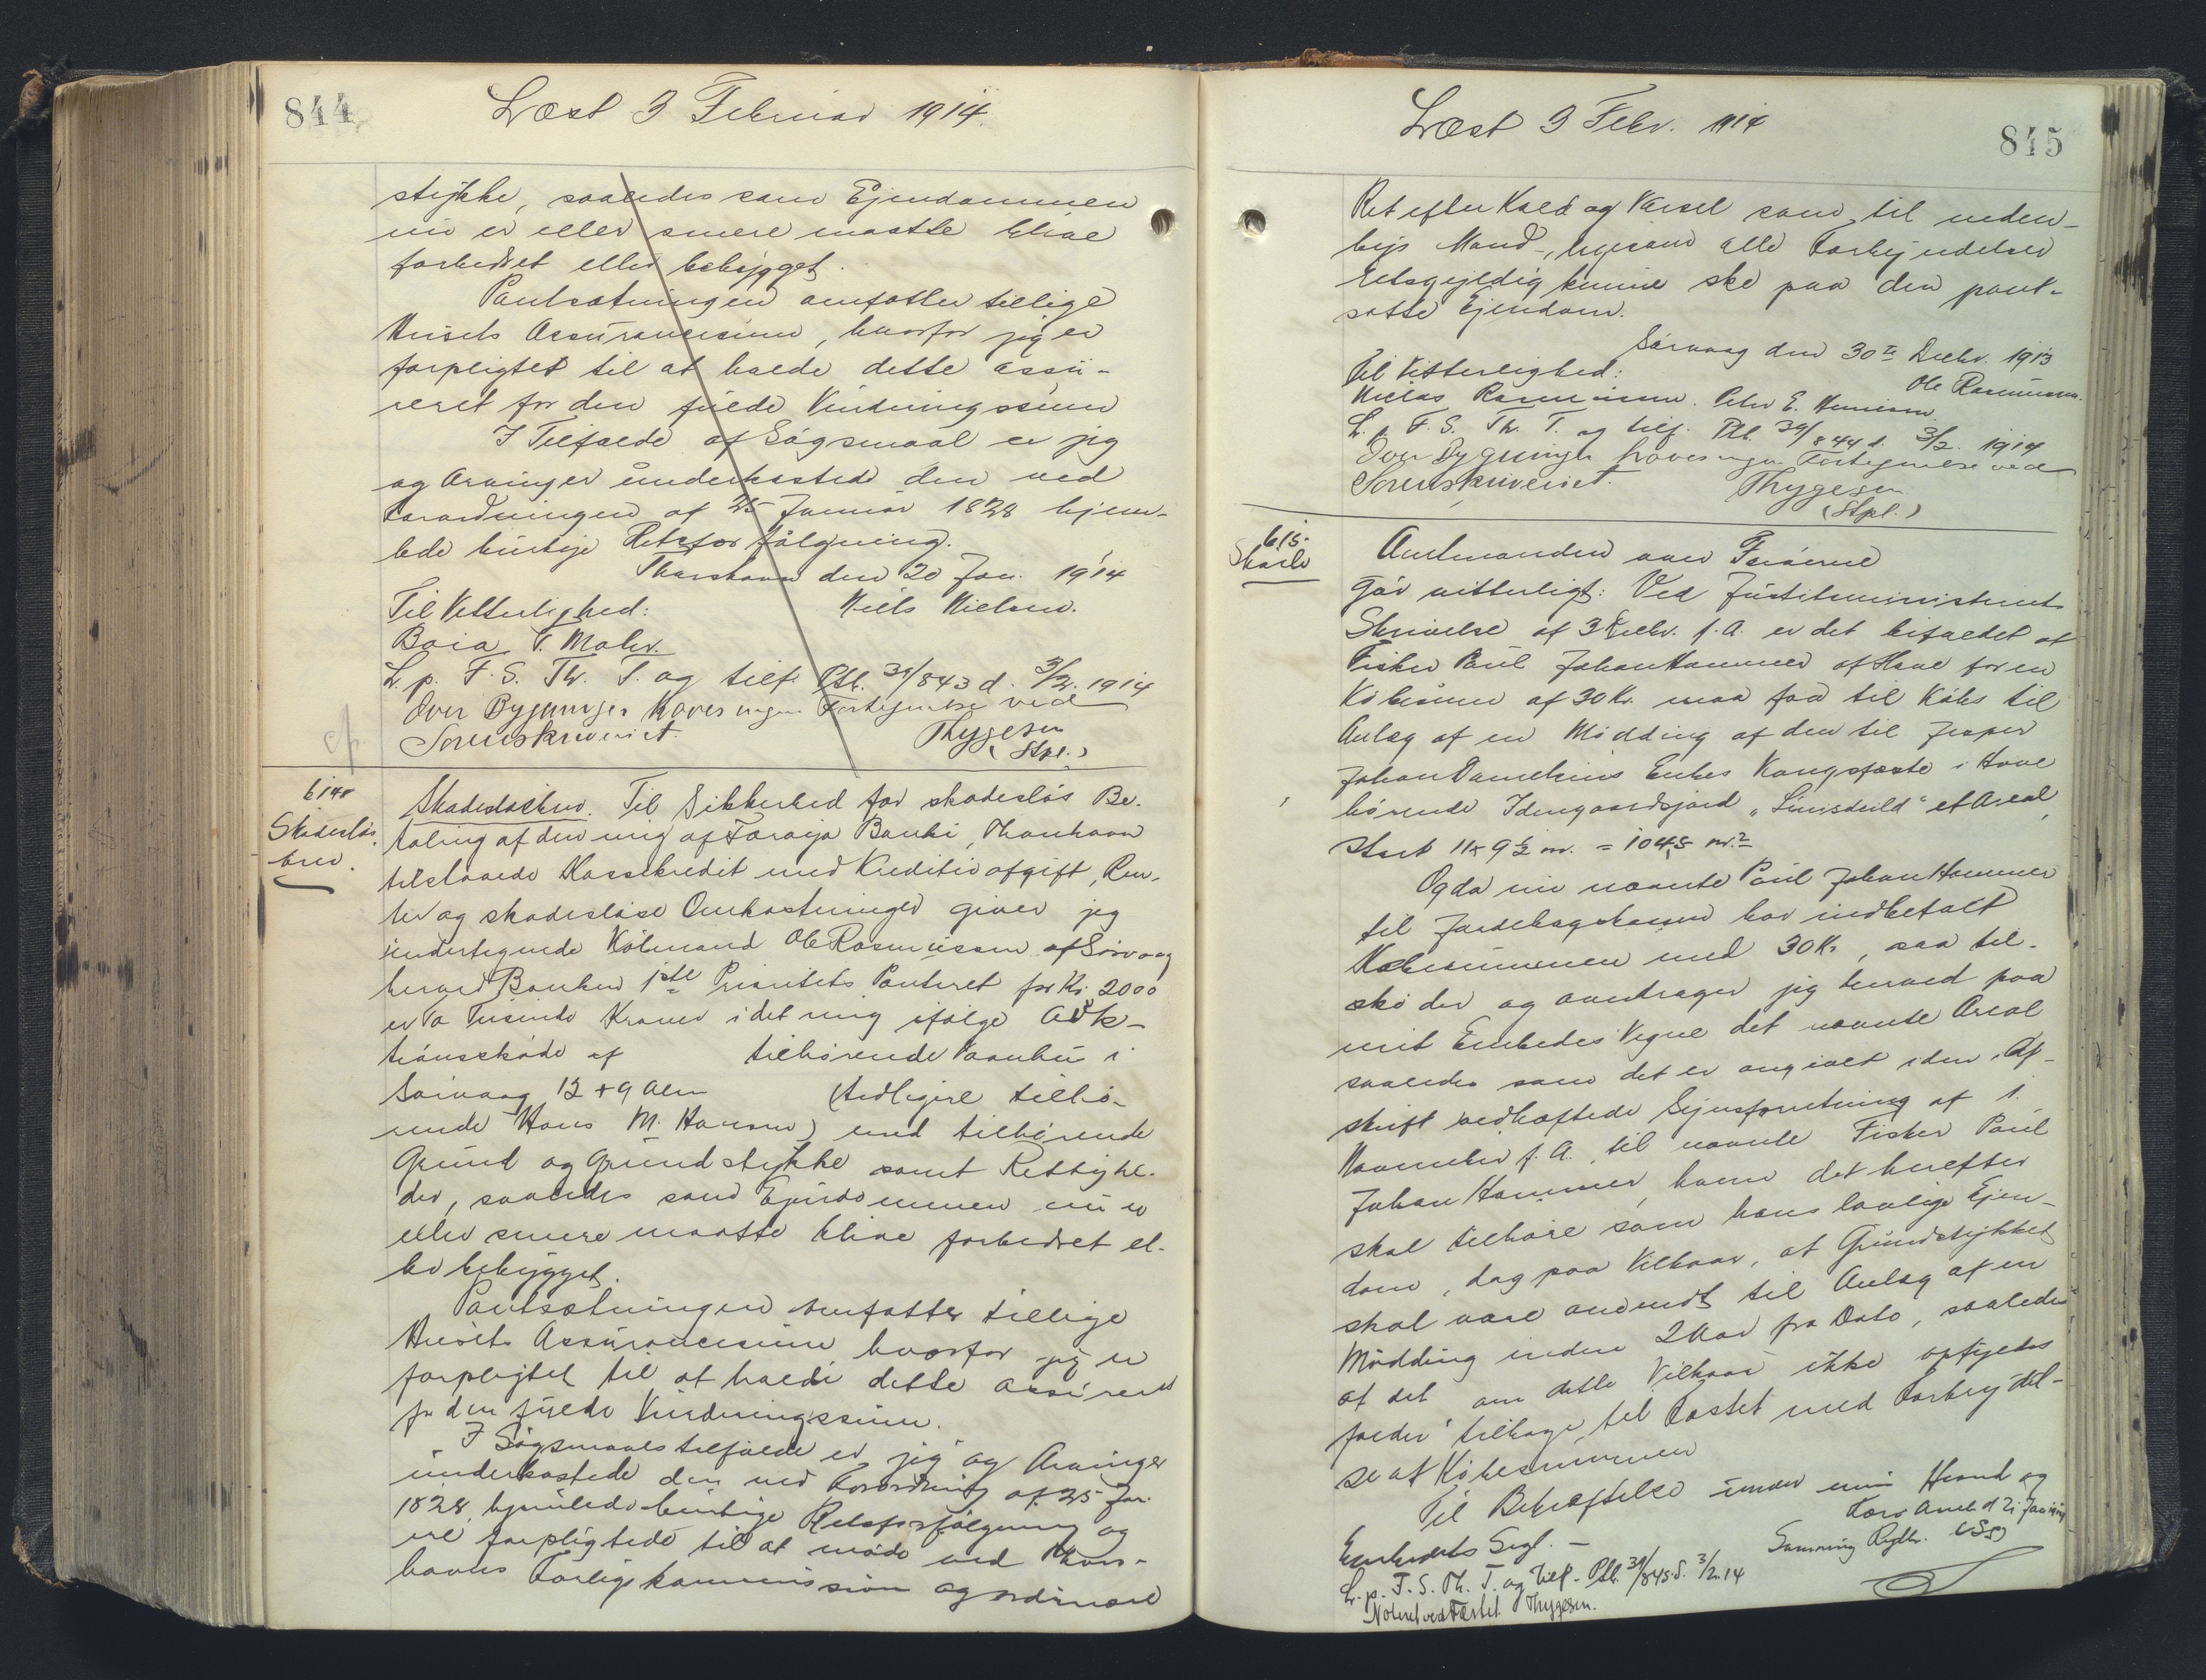 844
Læst 3 Februar 1914.
stykke, saaledes som Ejendommen
nu er eller senere maatte blive
forbedret eller bebygget.
Pantsætningen omfatter tillige
Husets Assurancesum, hvorfor jeg er
forpligtet til at holde dette assu-
reret for den fulde Vurderingssum
I Tilfælde af Søgsmaal er jeg
og Arvinger underkastede den ved
Forordningen af 25 Januar 1828 hjem-
lede hurtige Retsforfølgning.
Thorshavn den 20 Jan. 1914
Til Vitterlighed: Niels Nielsen.
Boia T. Mohr.
L. p. F. S. Th. T. og tilf. Ptb. 39/843 d. 3/2. 1914
Over Bygninger haves ingen Fortegnelse ved
Sorenskriveriet. Thygesen
(Stpl.)
614.
Skadesløs
brev.
Skadesløsbrev. Til Sikkerhed for skadesløs Be-
taling af den mig af Føroya Banki, Thorshavn
tilstaaede Kassekredit med Kreditivafgift, Ren-
ter og skadesløse Omkostninger giver jeg
undertegnede Købmand Ole Rasmussen af Sørvaag
herved Banken 1ste Prioritets Panteret for Kr. 2000
er To Tusinde Kroner i det mig ifølge Auk-
tionsskøde af tilhørende Vaanhus i
Sørvaag 12 + 9 Alen (tidligere tilhø-
rende Hans M. Hansen) med tilhørende
Grund og Grundstykke samt Rettighe-
der, saaledes som Ejendommen nu er
eller senere maatte blive forbedret el-
ler bebygget.
Pantsætningen omfatter tillige
Husets Assurancesum hvorfor jeg er
forpligtet til at holde dette assureret
for den fulde Vurderingssum.
I Søgsmaalstilfælde er jeg og Arvinger
underkastede den ved Forordning af 25 Jan.
1828 hjemlede hurtige Retsforfølgning og
ere forpligtede til at møde ved Thors-
havns Forligskommission og ordinære
Læst 3 Febr. 1914
845
Ret efter Kald og Varsel som til inden-
bys Mand, ligesom alle Forkyndelser
retsgyldig kunne ske paa den pant-
satte Ejendom.
Sørvaag den 30te Decbr. 1913
Til Vitterlighed: Ole Rasmussen.
Niclas Rasmussen. Peter E.
L. p. F. S. Th. T. og tilf. Ptb. 39/844 d. 3/2. 1914
Over Bygninger haves ingen Fortegnelse ved
Sorenskriveriet. Thygesen
(Stpl.)
615.
Skøde
Amtmanden over Færøerne
Gør vitterligt: Ved Justitsministeriets
Skrivelse af 3 Decbr. f. A. er det bifaldet at
Fisker Poul Johan Hammer af Hove for en
Købesum af 30 Kr. maa faa til Købs til
Anlæg af en Mødding af den til Jesper
Johan Danielsens Enkes Kongsfæste i Hove
hørende Indengaardsjord et Areal,
stort 11 × 9½ m. = 104,5 m.²
Og da nu nævnte Poul Johan Hammer
til Jordebogskassen har indbetalt
Købesummen med 30 Kr, saa til-
skøder og overdrager jeg herved paa
mit Embedes Vegne det nævnte Areal
saaledes som det er angivet i den i Af-
skrift vedhæftede Synsforretning af 1.
November f. A. til nævnte Fisker Poul
Johan Hammer, hvem det herefter
skal tilhøre som hans lovlige Ejen-
dom, dog paa Vilkaar, at Grundstykket
skal være anvendt til Anlæg af en
Mødding inden 2 Aar fra Dato, saaledes
at det om dette Vilkaar ikke opfyldes
falder tilbage til Fæstet med Fortrydel-
se af Købesummen
Til Bekræftelse under min Haand og
Embedets Segl. —
Færø Amt d 21 Jan 1914
Rytter. (LS)
L. p. F. S. Th. T. og tilf. Ptb. 39/845 d. 3/2. 14
Noteret ved Fæstet Thygesen.